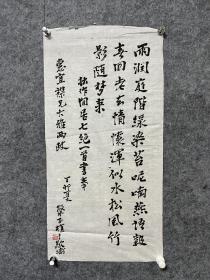 雨润庭阶绿染苔呢喃燕语报
春回老去情怀浑似水松风竹
影随梦来
拙作闲居七绝一首书奉
宜禄兄大雅两政
丁卯夏